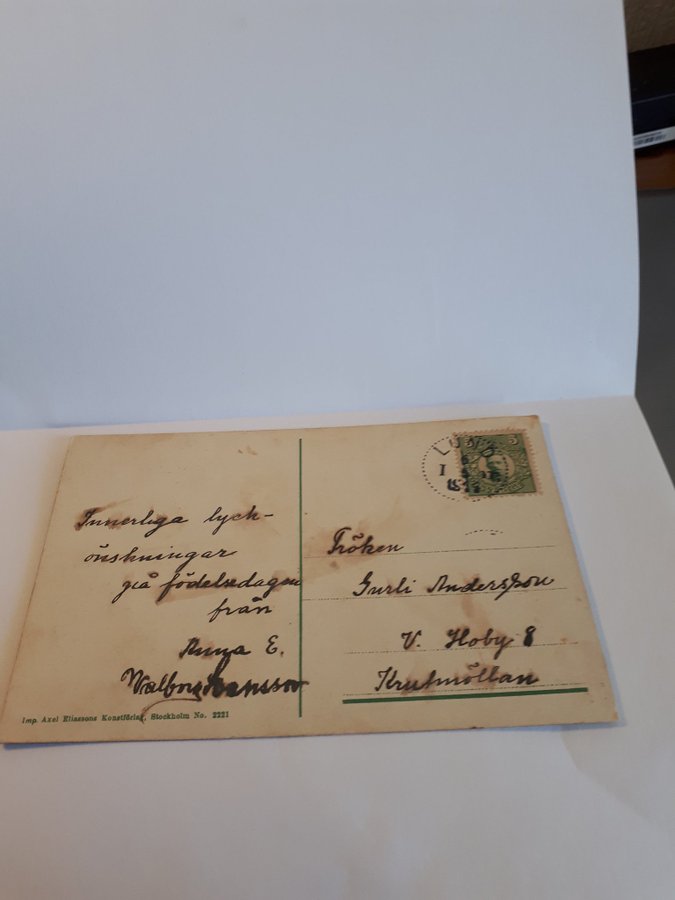 Innerliga lyck-
önskningar
på födelsedagen
från
Anna E.
Walborg Hansson
Imp. Axel Eliassons Konstförlag, Stockholm No. 2221
LUND
5
Fröken
Gurli Andersson
V. Hoby 8
Krutmöllan